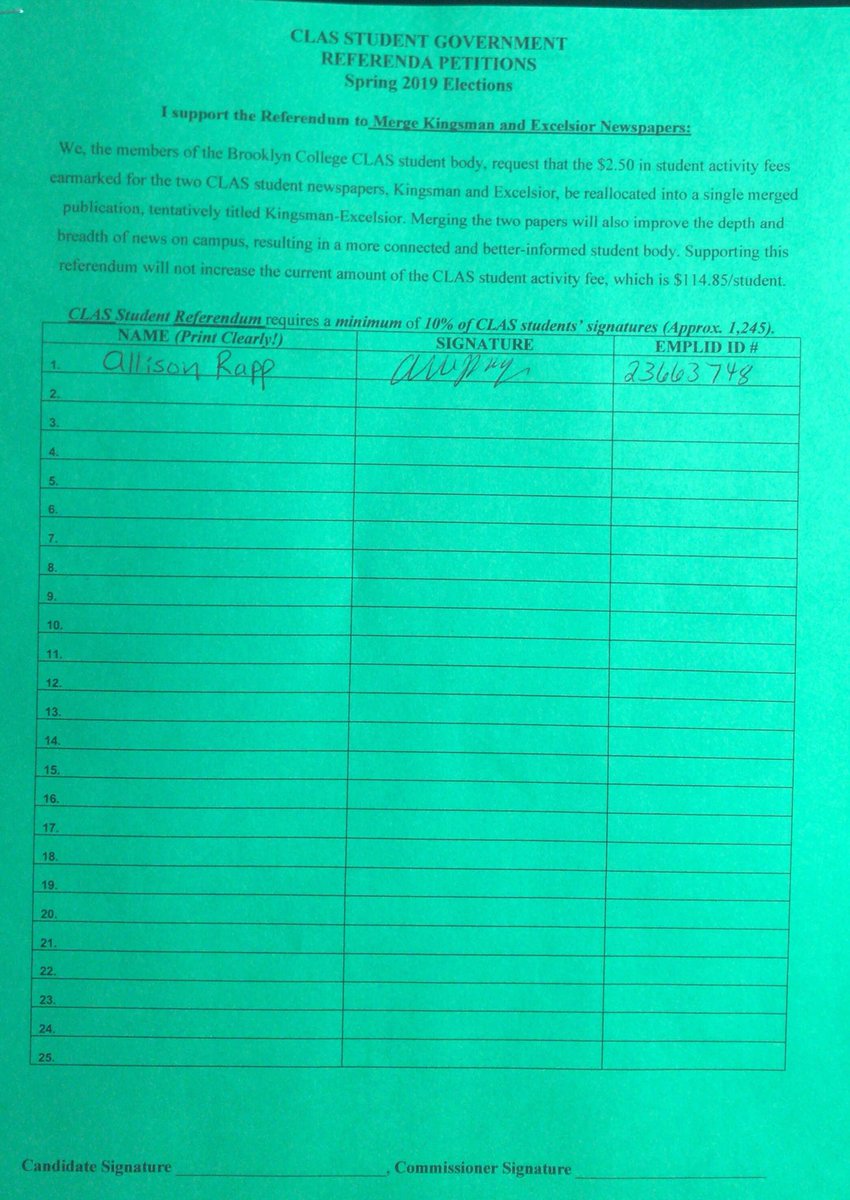 CLAS STUDENT GOVERNMENT
REFERENDA PETITIONS
Spring 2019 Elections
I support the Referendum to Merge Kingsman and Excelsior Newspapers:
We, the members of the Brooklyn College CLAS student body, request that the $2.50 in student activity fees
earmarked for the two CLAS student newspapers, Kingsman and Excelsior, be reallocated into a single merged
publication, tentatively titled Kingsman-Excelsior. Merging the two papers will also improve the depth and
breadth of news on campus, resulting in a more connected and better-informed student body. Supporting this
referendum will not increase the current amount of the CLAS student activity fee, which is $114.85/student.
CLAS Student Referendum requires a minimum of 10% of CLAS students' signatures (Approx. 1,245).
NAME (Print Clearly!) SIGNATURE EMPLID ID #
1. Allison Rapp 23663748
2.
3.
4.
5.
6.
7.
8.
9.
10.
11.
12.
13.
14.
15.
16.
17.
18.
19.
20.
21.
22.
23.
24.
25.
Candidate Signature ______________________, Commissioner Signature ____________________